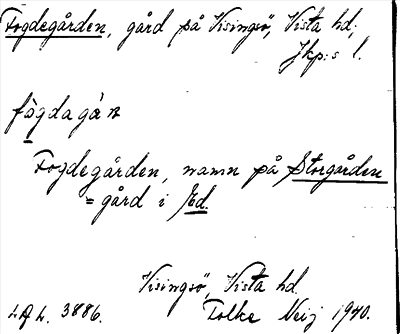 Fogdegården, gård på Visingsö, Vista hd;
Jkp:s l.
fògdagàṛn
Fogdegården, namn på Storgården
= gård i Ed.
Visingsö, Vista hd.
LAL. 3886. Folke Neij 1940.